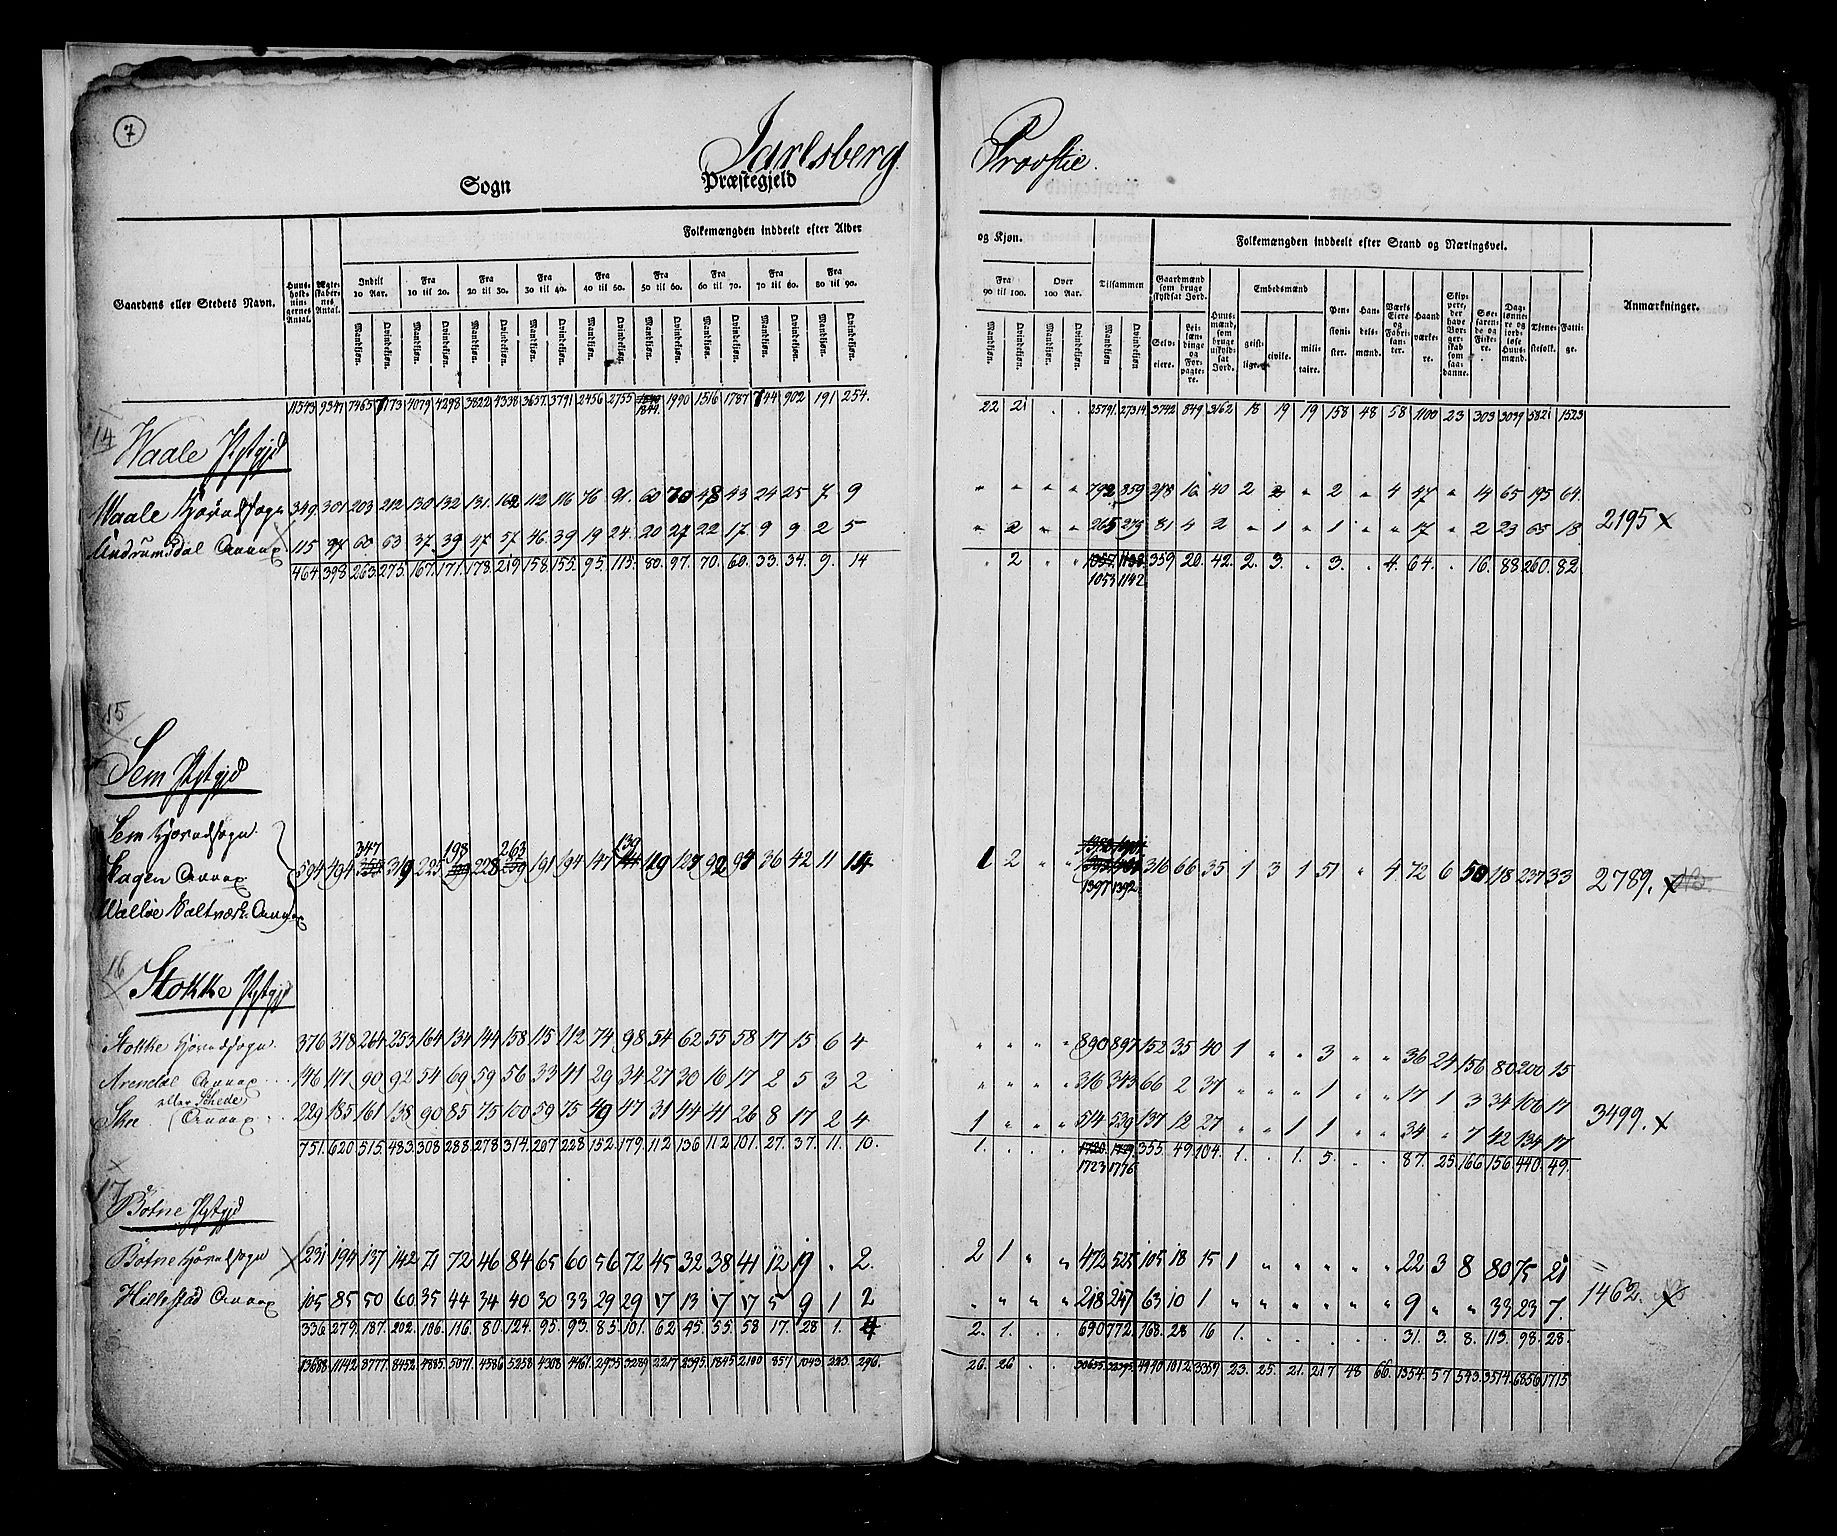 7
Jarlsberg Provstie.
Sogn Præstegjeld
Gaardens eller Stedets Navn.
Huusholdningernes Antal.
Ægteskabernes Antal.
Folkemængden inddeelt efter Alder og Kjøn.
Indtil 10 Aar. Fra 10 til 20. Fra 20 til 30. Fra 30 til 40. Fra 40 til 50. Fra 50 til 60. Fra 60 til 70. Fra 70 til 80. Fra 80 til 90. Fra 90 til 100. Over 100 Aar. Tilsammen
Mandkjøn. Qvindekjøn.
Folkemængden inddeelt efter Stand og Næringsvei.
Gaardmænd som bruge skyldsat Jord.
Selveiere.
Leilændinge og Forpagtere.
Huusmænd, som bruge uskyldsat Jord.
Embedsmænd
geistlige.
civile.
militaire.
Pensionister.
Handelsmænd.
Værks Eiere og Fabrikanter.
Haandværkere.
Skippere, der have Borgerskab som saadanne.
Søefarende og Fiskere.
Dagleiere og jordløse Huusmænd.
Tjenestefolk.
Fattige.
Anmærkninger.
11543 9347 7465 7173 4079 4298 3822 4338 3637 3791 2456 2755 1844 1990 1516 1787 744 902 191 254. 22 21 . . 25791 27314 3742 849 3162 18 19 19 158 48 58 1100 23 303 3039 5821 1523
14
Waale Pstgjd
Waale Hovedsogn 349 301 203 212 130 132 131 162 112 116 76 91 60 70 48 43 24 25 7 9 " " " " 792 859 278 16 40 2 2 " 2 " 4 47 " 14 65 195 64.
Undrumsdal Annax. 115 97 60 63 37 39 47 57 46 39 19 24 20 27 22 17 9 9 2 5 " 2 " " 265 275 81 4 2 " 1 " 1 " " 17 " 2 23 65 18
2195 x
464 398 263 275 167 171 178 219 158 155 95 115 80 97 70 60 33 34 9 14 " 2 . . 359 20 42 2 3 . 3 . 4 64 . 16 88 260 82
1053 1142
15
Sem Pstgjd
Sem Hovedsogn.
Slagen Annax
Walløe Saltværk Annax
594 494 347 319 225 198 228 263 191 194 147 139 119 127 92 97 36 42 11 14 1 2 " " 1397 1392 316 66 35 1 3 1 51 " 4 72 6 50 118 237 33
2789. x
16
Stokke Pstgjd
Stokke Hovedsogn. 376 318 264 253 164 134 144 158 115 112 74 98 54 62 55 58 17 15 6 4 " " " " 890 897 152 35 40 1 " " 3 " " 36 24 156 80 200 15
Arendal Annax 146 117 90 92 54 69 59 56 33 41 29 34 27 30 16 17 2 5 3 2 " " " " 316 343 66 2 37 " " " 1 " " 17 1 3 34 106 17
eller Schede
Skee Annax 229 185 161 138 90 85 75 100 59 75 49 47 31 44 41 26 8 17 2 4 1 " " " 514 539 137 12 27 " " 1 1 " " 34 " 7 42 134 17
3499. x
751. 620 515. 483. 308 288 278. 314. 207 228 152. 179. 112 136 112 101. 27. 37. 11. 10. 1. . . . 355. 49. 104. 1. . 1. 5. . . 87. 25. 166 156 440. 49.
1723 1776
17
Botne Pstgjd
Botne Hovedsogn 231 194 137 142 71 72 46 84 65 60 56 72 45 32 38 41 12 19 . 2. 2 1 " " 472 525 105 18 15 1 " " " " " 22 3 8 80 75 21
Hillestad Annax 105 85 50 60 35 44 34 40 30 33 29 29 17 13 17 17 5 9 1 2 " " " " 218 247 63 10 1 " " " " " " 9 " " 33 23 7.
1462. x
336. 279. 187. 202. 106. 116. 80. 124. 95. 93. 85. 101. 62 45. 55. 58 17. 28 1. 4 2. 1. . . 690 772. 168. 28 16 1. . . . . . 31. 3. 8. 113. 98. 28.
13688 11142 8777 8452 4885 5071 4586 5258 4308 4461 2935 3289 2217 2395 1845 2100 857 1043 223. 296. 26. 26 . . 30655 32395 4940 1012 3359 23. 25. 21. 217 48 66. 1354. 57 543. 3514. 6856 1715